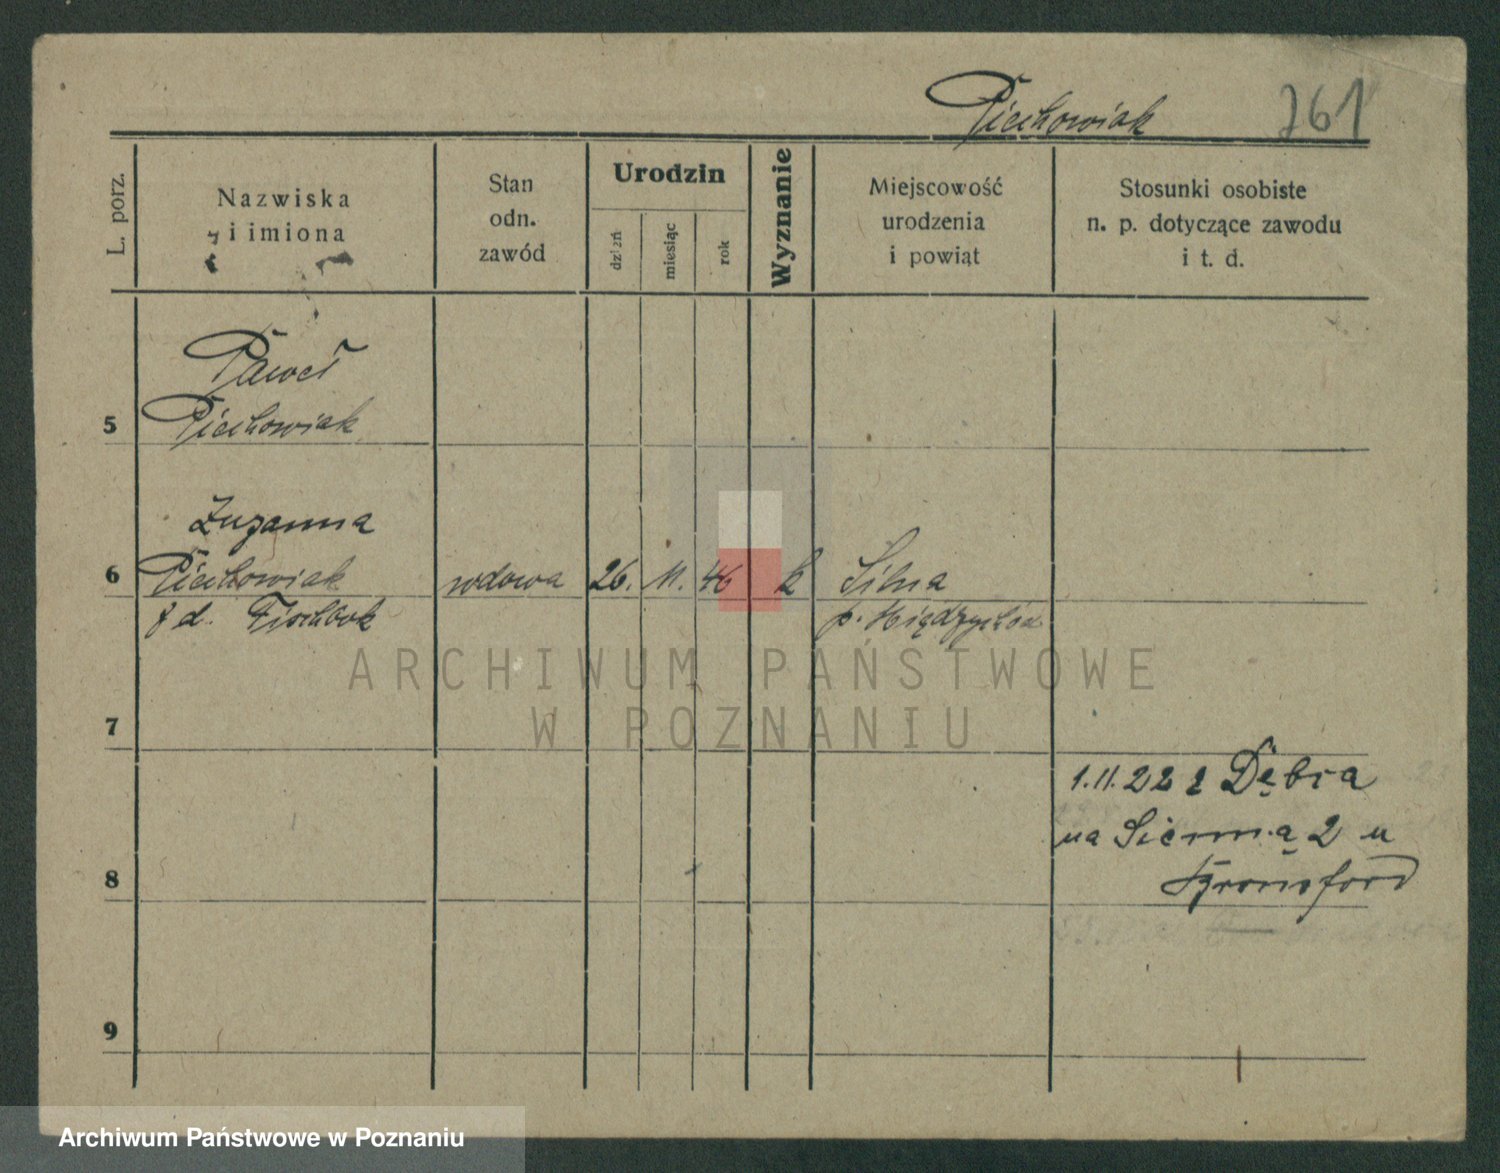 Piechowiak 761
L. porz.
Nazwiska
i imiona
Stan
odn.
zawód
Urodzin
dzień
miesiąc
rok
Wyznanie
Miejscowość
urodzenia
i powiąt
Stosunki osobiste
n. p. dotyczące zawodu
i t. d.
Paweł
5 Piechowiak
Zuzanna
6 Piechowiak wdowa 26. 11. 46 k Silna
Fischbock p. Międzychód
ARCHIWUM PAŃSTWOWE
W POZNANIU
7
1.11.22 z Dębca
na Sienną 2 u
8
9
Archiwum Państwowe w Poznaniu